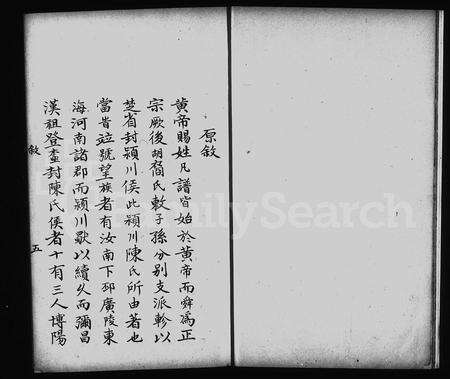 原敘
黄帝賜姓凡譜皆始於黄帝而舜爲正
宗厥後胡裔氏敷子孫分别支派軫以
芝省封潁川侯此潁川陳氏所由著也
當時竝號望族者有汝南下邳廣陵東
海河南諸郡而潁川歇以續久而彌昌
漢祖登壹封陳氏侯者十有三人博陽
敘
五
FamilySearch